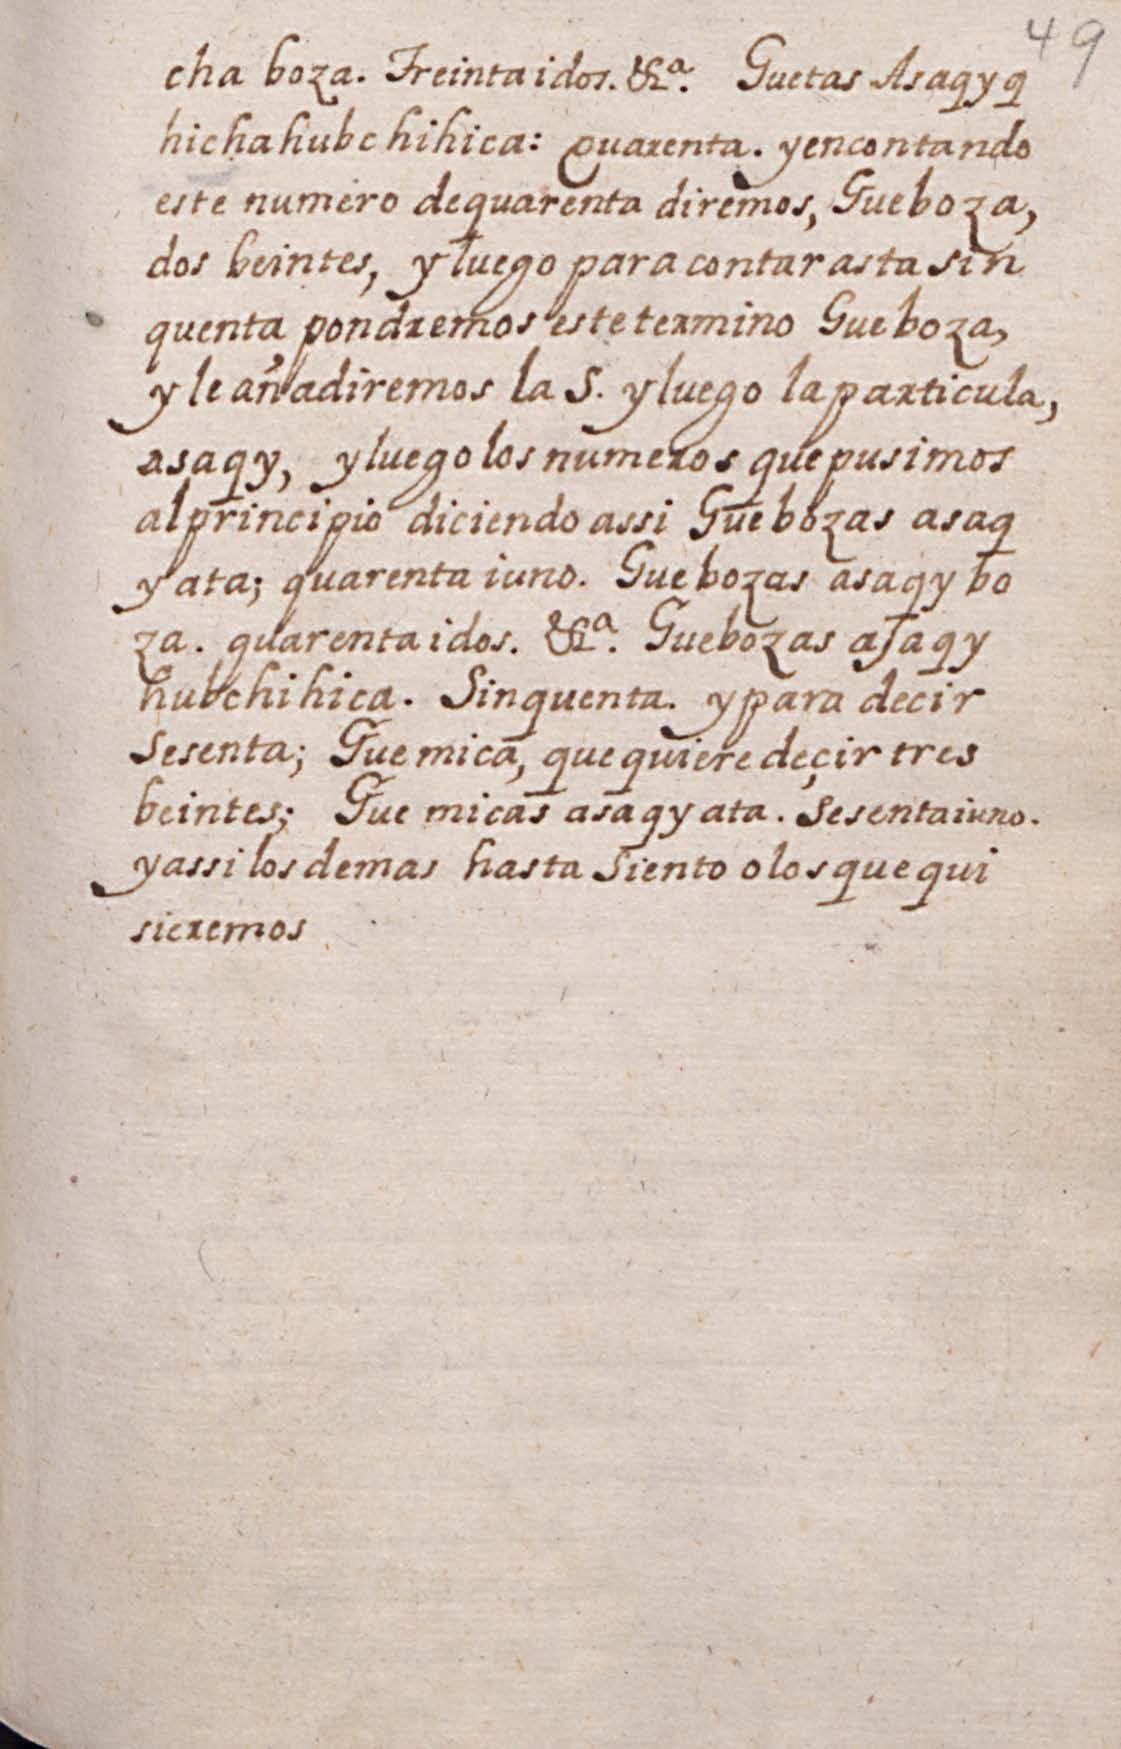 49
cha boza. Treinta idos. &a. Guetas Asaqy q
hichahubchihica: quarenta. yencontando
este numero dequarenta diremos, Gueboza,
dos beintes, y luego para contar asta sin
quenta pondremos estetermino Gueboza,
y le añadiremos la S. y luego la particula,
asaqy, yluego los numeros que pusimos
alprincipio diciendo assi Guebozas asaq
y ata; quarenta iuno. Guebozas asaqy bo
za. quarenta idos. &a. Guebozas asaqy
hubchihica. Sinquenta. y para decir
Sesenta; Guemica, quequiere deçir tres
beintes; Gue micas asaqy ata. Sesentaiuno.
yassi los demas hasta Siento olosquequi
sieremos